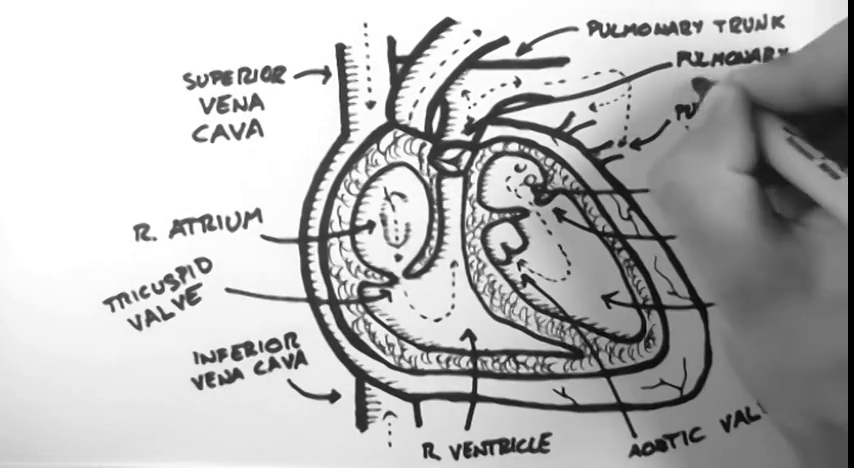 PULMONARY TRUNK
PULMONARY
PU
SUPERIOR
VENA
CAVA
R. ATRIUM
TRICUSPID
VALVE
INFERIOR
VENA CAVA
R VENTRICLE
AORTIC VAL